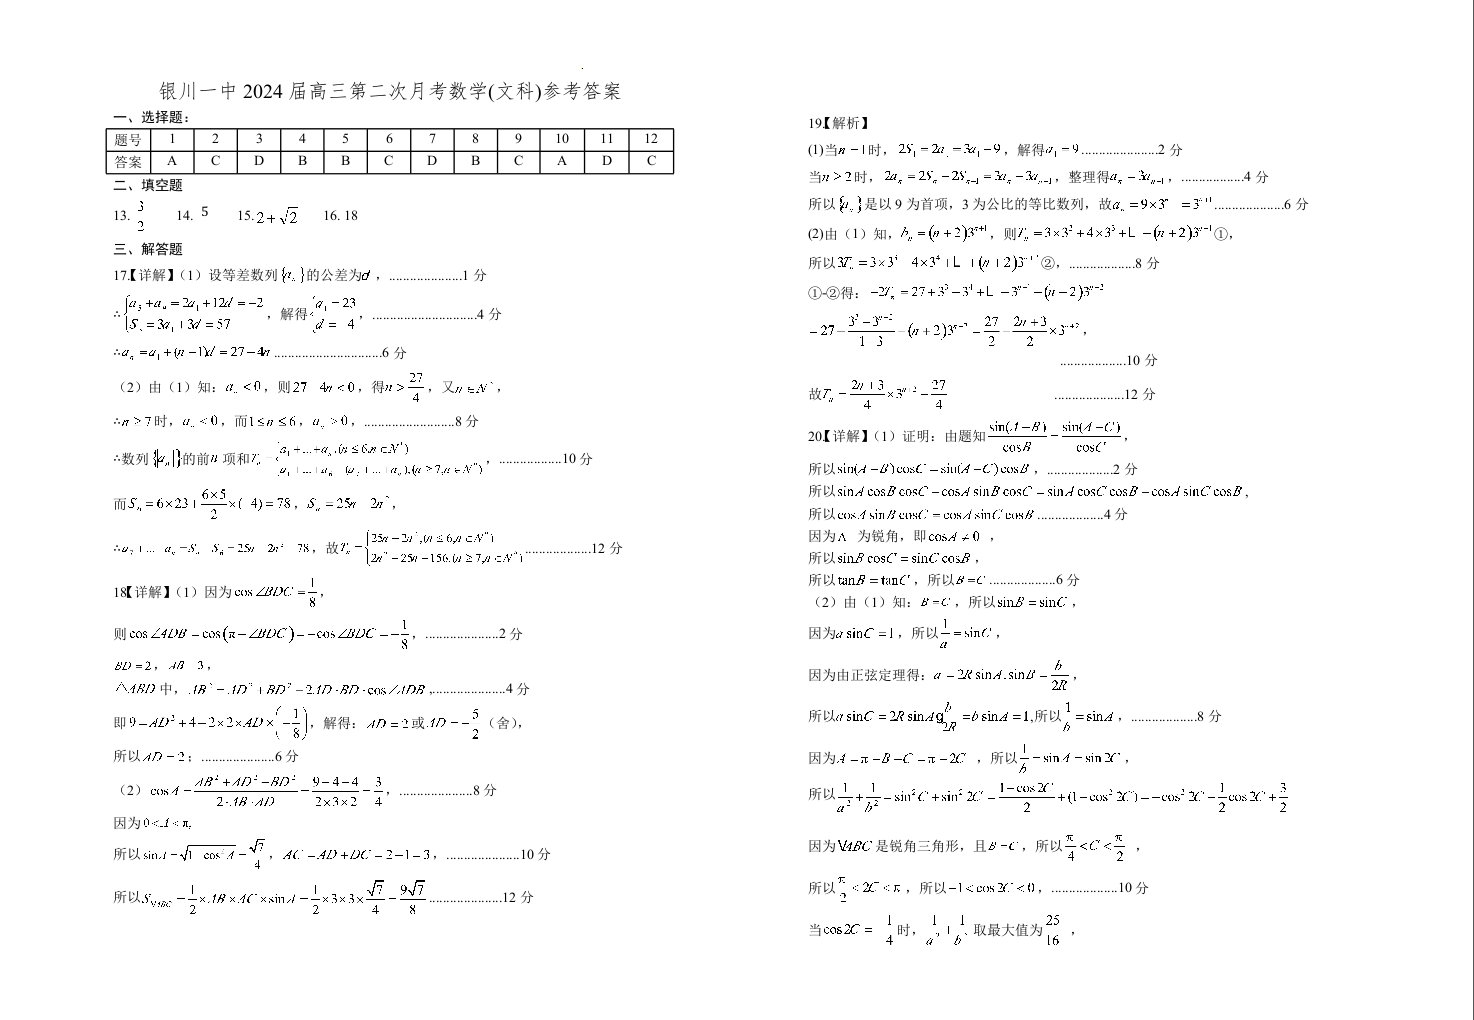 银川一中 2024 届高三第二次月考数学(文科)参考答案
一、选择题:
题号 1 2 3 4 5 6 7 8 9 10 11 12
答案 A C D B B C D B C A D C
二、填空题
13. 3/2 14. 5 15. 2+√2 16. 18
三、解答题
17.【详解】(1) 设等差数列{aₙ}的公差为d,......................1 分
,解得 ,............................4 分
∴aₙ=a₁+(n−1)d=27−4n..............................6 分
(2)由(1)知:aₙ<0,则27 4n<0,得n>27/4,又
∴n>7时,aₙ<0,而1≤n≤6,aₙ>0,..........................8 分
∴数列 的前n项和 ,..................10 分
而
,故 ....................12 分
18【详解】(1)因为cos∠BDC=1/8,
则cos∠ADB=cos(π−∠BDC)=−cos∠BDC=−1/8,.....................2 分
BD=2,AB 3,
△ABD中,AB²=AD²+BD²−2AD·BD·cos∠ADB,.....................4 分
即9=AD²+4−2×2×AD×(−1/8),解得:AD=2或AD=−5/2(舍),
所以AD=2;.....................6 分
(2)cosA=(AB²+AD²−BD²)/(2·AB·AD)=(9+4−4)/(2×3×2)=3/4,.....................8 分
因为0<A<π,
所以sinA=√(1 cos²A)=√7/4,AC=AD+DC=2−1=3,.....................10 分
所以S▽ABC=1/2×AB×AC×sinA=1/2×3×3×√7/4=9√7/8.....................12 分
19【解析】
(1)当n=1时,2S₁=2a₁=3a₁−9,解得a₁=9......................2 分
当n≥2时,2aₙ=2Sₙ−2Sₙ₋₁=3aₙ−3aₙ₋₁,整理得aₙ=3aₙ₋₁,..................4 分
所以{aₙ}是以 9 为首项,3 为公比的等比数列,故 ....................6 分
(2)由(1)知,bₙ=(n+2)3ⁿ⁺¹,则 ①,
所以 ②,...................8 分
①-②得:
...................10 分
故 ....................12 分
20【详解】(1)证明:由题知sin(A−B)/cosB=sin(A−C)/cosC,
所以sin(A−B)cosC=sin(A−C)cosB,...................2 分
所以sinAcosBcosC−cosAsinBcosC=sinAcosCcosB−cosAsinCcosB,
所以cosAsinBcosC=cosAsinCcosB...................4 分
因为A 为锐角,即cosA≠0 ,
所以sinBcosC=sinCcosB,
所以tanB=tanC,所以B=C...................6 分
(2)由(1)知:B=C,所以sinB=sinC,
因为a sinC=1,所以1/a=sinC,
因为由正弦定理得:a=2RsinA,sinB=b/2R,
所以a sinC=2RsinAgb/2R=b sinA=1,所以1/b=sinA,...................8 分
因为A=π−B−C=π−2C ,所以1/b=sinA=sin2C,
所以1/a²+1/b²=sin²C+sin²2C=(1−cos2C)/2+(1−cos²2C)=−cos²2C−1/2cos2C+3/2
因为▽ABC是锐角三角形,且B=C,所以π/4<C<π/2 ,
所以π/2<2C<π,所以−1<cos2C<0,...................10 分
当cos2C= 1/4时, 取最大值为25/16 ,